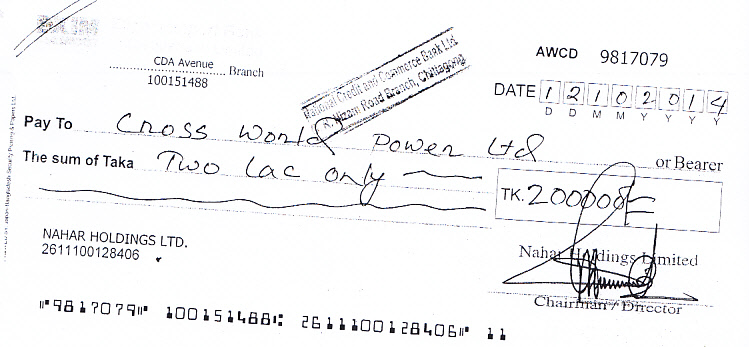 AWCD 9817079
CDA Avenue Branch
100151488
National Credit and Commerce Bank Ltd
Nizam Road Branch, Chittagong
DATE 12102014
D D M M Y Y Y Y
Pay To Cross World Power Ltd or Bearer
The sum of Taka Two Lac only
TK. 200000/=
NAHAR HOLDINGS LTD.
2611100128406
Nahar Holdings Limited
Chairman / Director
⑈9817079⑈ 100151488⑆ 2611100128406⑈ 11